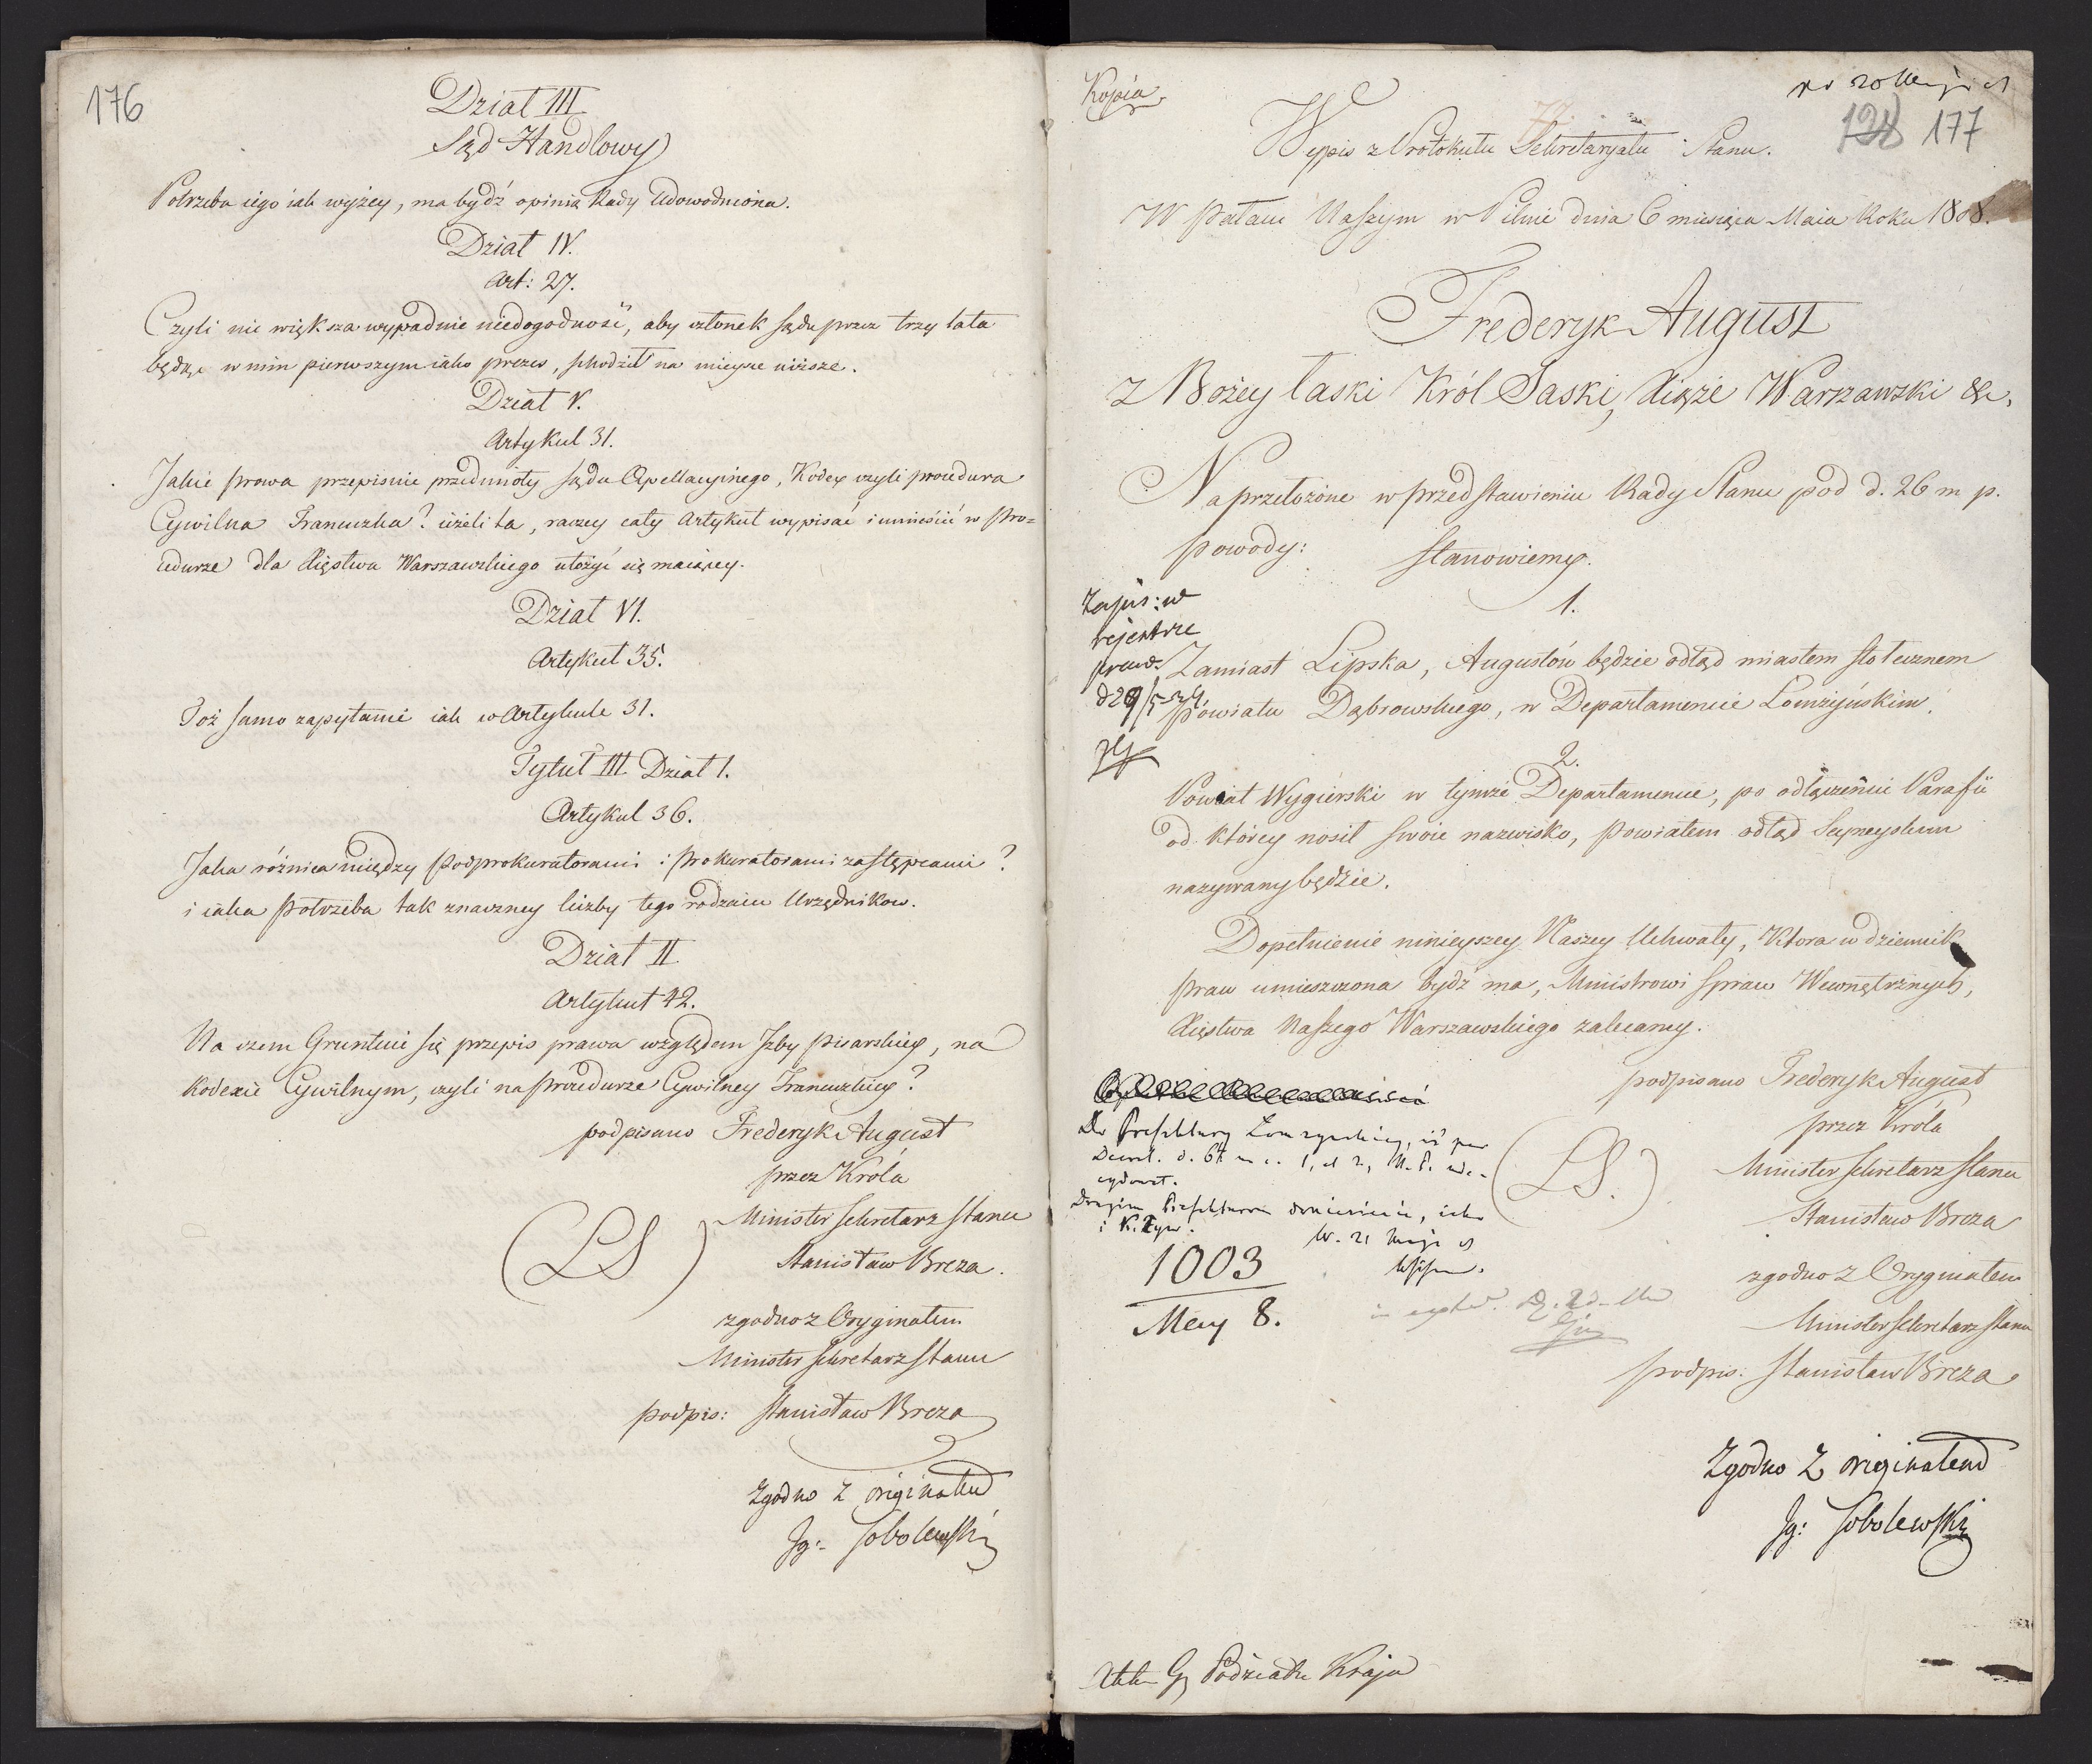 176
Dział III
Sąd Handlowy
Potrzeba iego iak wyżey, ma bydź opinią Rady udowodniona.
Dział IV.
Art: 27.
Czyli nie większa wypadnie niedogodność, aby członek sądu przez trzy lata
będąc w nim pierwszym iako prezes, schodził na mieysce niższe.
Dział V.
Artykuł 31.
Jakie prawa przepisuie przedmioty sądu Apellacyinego, Kodex czyli procedura
Cywilna Francuzka? ieżeli ta, raczey cały Artykuł wypisać i umieścić w Pro=
cedurze dla Xięstwa Warszawskiego ułożyć się maiącey.
Dział VI.
Artykuł 35.
Toż samo zapytanie iak w Artykule 31.
Tytuł III Dział 1.
Artykuł 36.
Jaka różnica między Podprokuratorami i Prokuratorami zastępcami?
i iaka potrzeba tak znaczney liczby tego rodzaiu Urzędnikow.
Dział II
Artykuł 42.
Na czem Gruntuie się przepis prawa względem Izby Pisarskiey, na
Kodexie Cywilnym, czyli na procedurze Cywilney Francuzkiey?
podpisano Frederyk August
przez Króla
Minister Sekretarz Stanu
(LS) Stanisław Breza.
zgodno z Oryginałem
Minister Sekretarz Stanu
podpis: Stanisław Breza
Zgodno z originałem
Ig: Sobolewski
Kopia
128 177
Wypis z Protokułu Sekretaryatu Stanu.
W Pałacu Naszym w Pilnie dnia 6 miesiąca Maia Roku 1808.
Frederyk August
z Bożey łaski Król Saski, Xiąże Warszawski &c,
Na przełożone w przedstawieniu Rady Stanu pod d. 26 m p.
powody: stanowiemy.
1.
Zapis: w
rejestrze
praw.
Zamiast Lipska, Augustów będzie odtąd miastem stołecznem
Powiatu Dąbrowskiego, w Departamencie Łomżyńskim.
2.
Powiat Wygierski w tymże Departamencie, po odłączeniu Parafii
od którey nosił swoie nazwisko, Powiatem odtąd Seyneyskim
nazywany będzie.
Dopełnienie ninieyszey Naszey Uchwały, Ktora w dziennik
Praw umieszczona bydź ma, Ministrowi Spraw Wewnętrznych,
Xięstwa Naszego Warszawskiego zalecamy.
podpisano Frederyk August
przez Króla
(LS.) Minister Sekretarz Stanu
Stanisław Breza
zgodno z Oryginałem
Minister Sekretarz Stanu
podpis: Stanisław Breza
Do Prefektury Łomżyńskiey, iż per
1003
May 8.
Zgodno z originałem
Ig: Sobolewski
Podziału Kraju